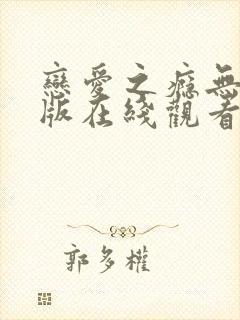 戀愛之癮無
版在綫觀看
郭多權